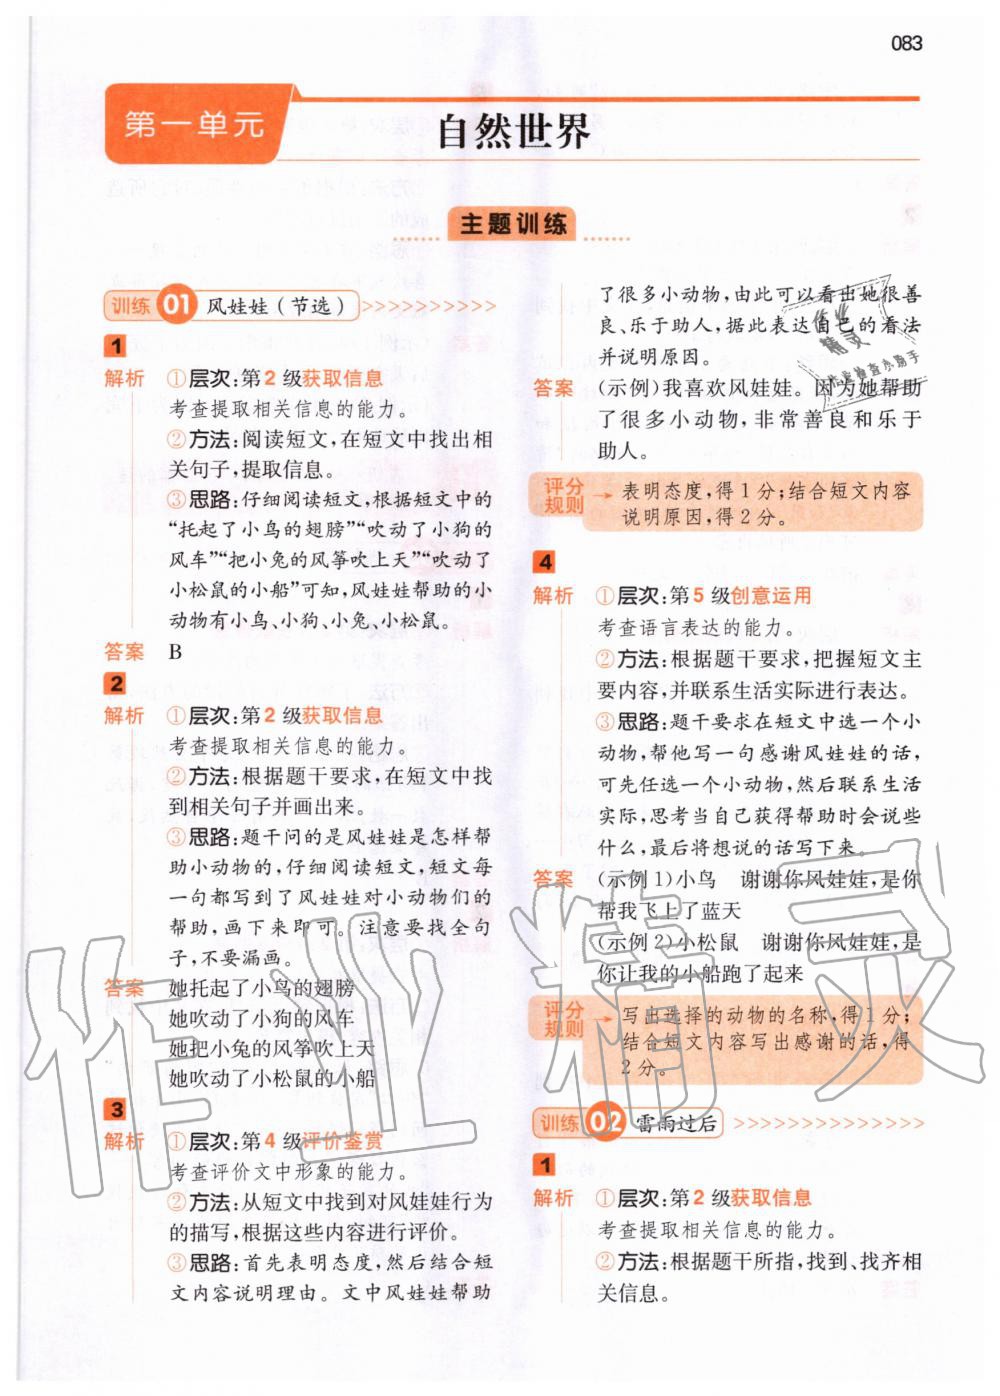 083
第一单元
自然世界
主题训练
训练 01 风娃娃（节选）
1
解析 ①层次:第2级获取信息
考查提取相关信息的能力。
②方法:阅读短文,在短文中找出相
关句子,提取信息。
③思路:仔细阅读短文,根据短文中的
“托起了小鸟的翅膀”“吹动了小狗的
风车”“把小兔的风筝吹上天”“吹动了
小松鼠的小船”可知,风娃娃帮助的小
动物有小鸟、小狗、小兔、小松鼠。
答案 B
2
解析 ①层次:第2级获取信息
考查提取相关信息的能力。
②方法:根据题干要求,在短文中找
到相关句子并画出来。
③思路:题干问的是风娃娃是怎样帮
助小动物的,仔细阅读短文,短文每
一句都写到了风娃娃对小动物们的
帮助,画下来即可。注意要找全句
子,不要漏画。
答案 她托起了小鸟的翅膀
她吹动了小狗的风车
她把小兔的风筝吹上天
她吹动了小松鼠的小船
3
解析 ①层次:第4级评价鉴赏
考查评价文中形象的能力。
②方法:从短文中找到对风娃娃行为
的描写,根据这些内容进行评价。
③思路:首先表明态度,然后结合短
文内容说明理由。文中风娃娃帮助
了很多小动物,由此可以看出她很善
良、乐于助人,据此表达自己的看法
并说明原因。
答案 (示例)我喜欢风娃娃。因为她帮助
了很多小动物,非常善良和乐于
助人。
评分规则 → 表明态度,得1分;结合短文内容
说明原因,得2分。
4
解析 ①层次:第5级创意运用
考查语言表达的能力。
②方法:根据题干要求,把握短文主
要内容,并联系生活实际进行表达。
③思路:题干要求在短文中选一个小
动物,帮他写一句感谢风娃娃的话,
可先任选一个小动物,然后联系生活
实际,思考当自己获得帮助时会说些
什么,最后将想说的话写下来。
答案 (示例1)小鸟 谢谢你风娃娃,是你
帮我飞上了蓝天
(示例2)小松鼠 谢谢你风娃娃,是
你让我的小船跑了起来
评分规则 → 写出选择的动物的名称,得1分;
结合短文内容写出感谢的话,得
2分。
训练 02 雷雨过后
1
解析 ①层次:第2级获取信息
考查提取相关信息的能力。
②方法:根据题干所指,找到、找齐相
关信息。
作业精灵